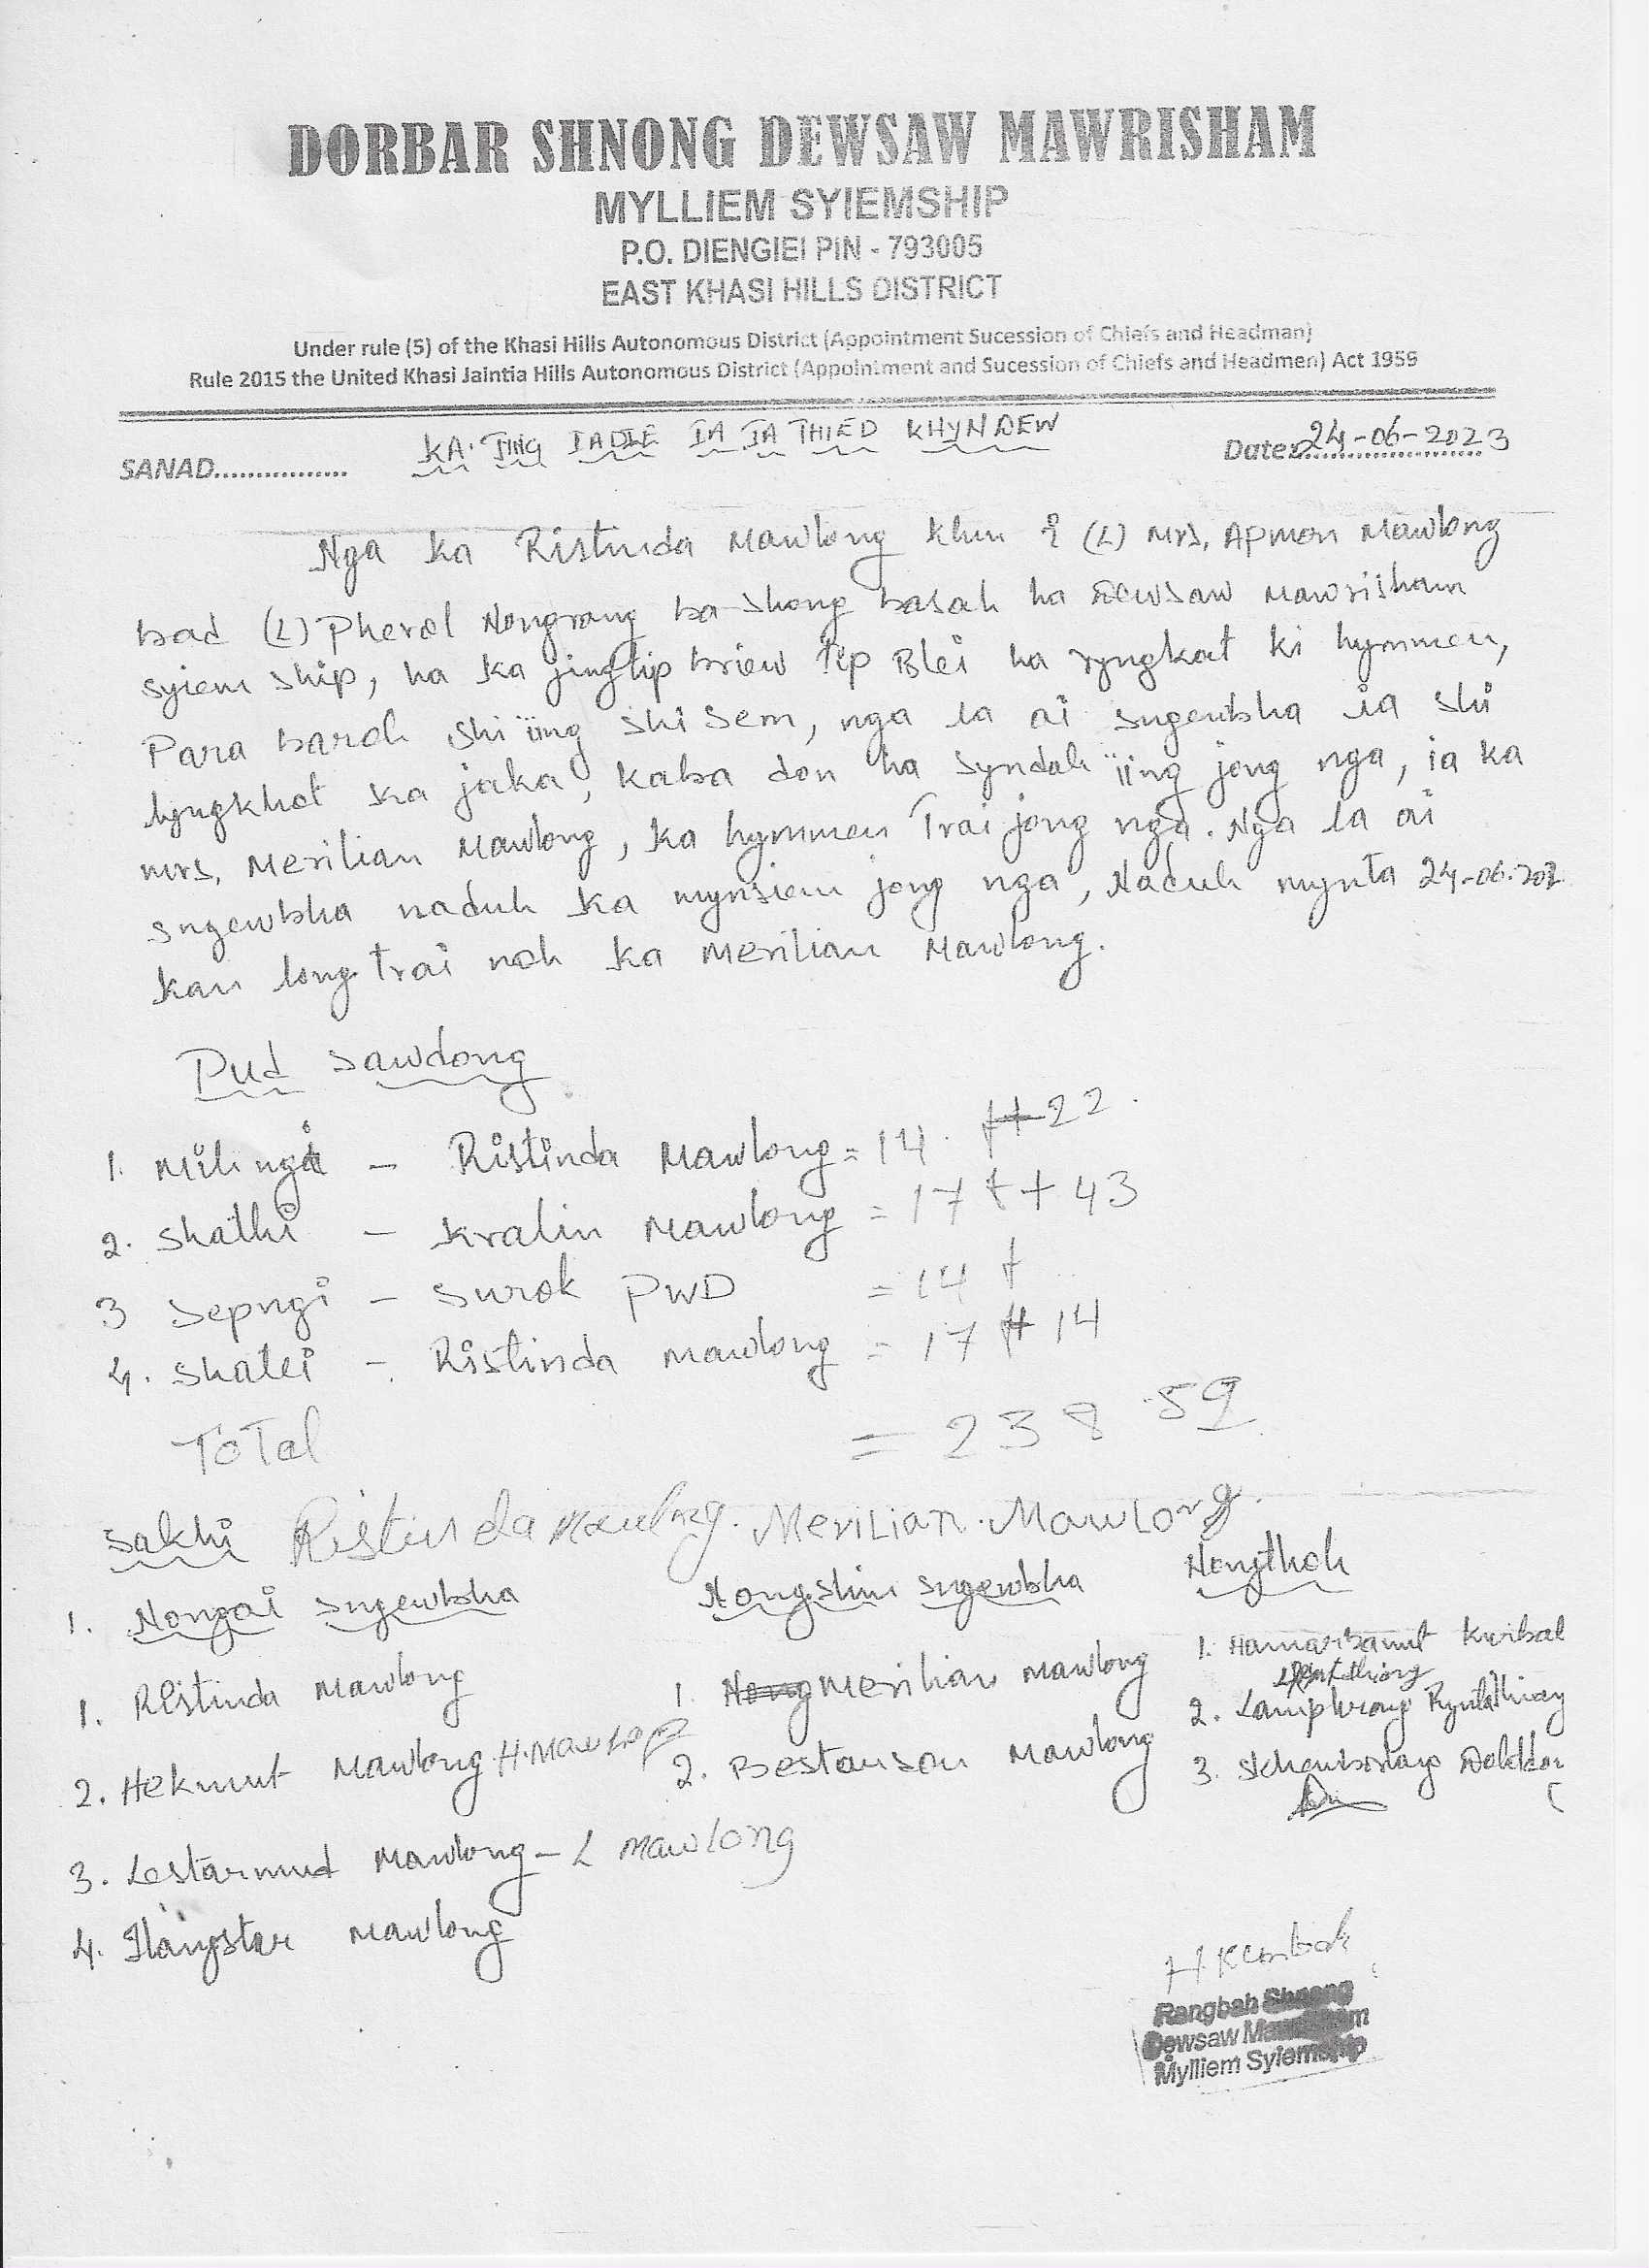 DORBAR SHNONG DEWSAW MAWRISHAM
MYLLIEM SYIEMSHIP
P.O. DIENGIEI PIN - 793005
EAST KHASI HILLS DISTRICT
Under rule (5) of the Khasi Hills Autonomous District (Appointment Sucession of Chiefs and Headman)
Rule 2015 the United Khasi Jaintia Hills Autonomous District (Appointment and Sucession of Chiefs and Headmen) Act 1959
SANAD................ KA. JING IADIE IA JA THIED KHYNDEW Date: 24-06-2023
Nga ka Ristinda Mawlong khun i (L) Mrs. Apmon Mawlong
bad (L) Pherol Nongrang ba shong basah ha Dewsaw Mawrisham
syiem ship, ha ka jingtip briew tip Blei ha ryngkat ki hynmen,
Para baroh shi ïing shi sem, nga la ai sngewbha ia shi
lyngkhot ka jaka, kaba don ha syndah ïing jong nga, ia ka
mrs. Merilian Mawlong, ka hynmen Trai jong nga. Nga la ai
sngewbha naduh ka mynsiem jong nga, Naduh mynta 24-06-202
kan long trai noh ka Merilian Mawlong.
Pud Sawdong
1. Mihngi - Ristinda Mawlong = 14 ft 22
2. Shathi - Kralin Mawlong = 17 ft + 43
3 Sepngi - Surok PWD = 14 f
4. Shatei - Ristinda Mawlong = 17 ft 14
Total = 238 .59
Sakhi Ristinda Mawlong. Merilian. Mawlong.
1. Nongai sngewbha Nongshim sngewbha Nongthoh
1. Ristinda Mawlong 1. Merilian Mawlong 1. Kurbah
2. Hekmut Mawlong H. Mawlong 2. Bestarson Mawlong 2. Lamphrang Rynthathiang
3. Dohkdor
3. Lestarmud Mawlong - L Mawlong
4. Ilangstar Mawlong
Rangbah Shnong
Dewsaw Mawrisham
Mylliem Syiemship